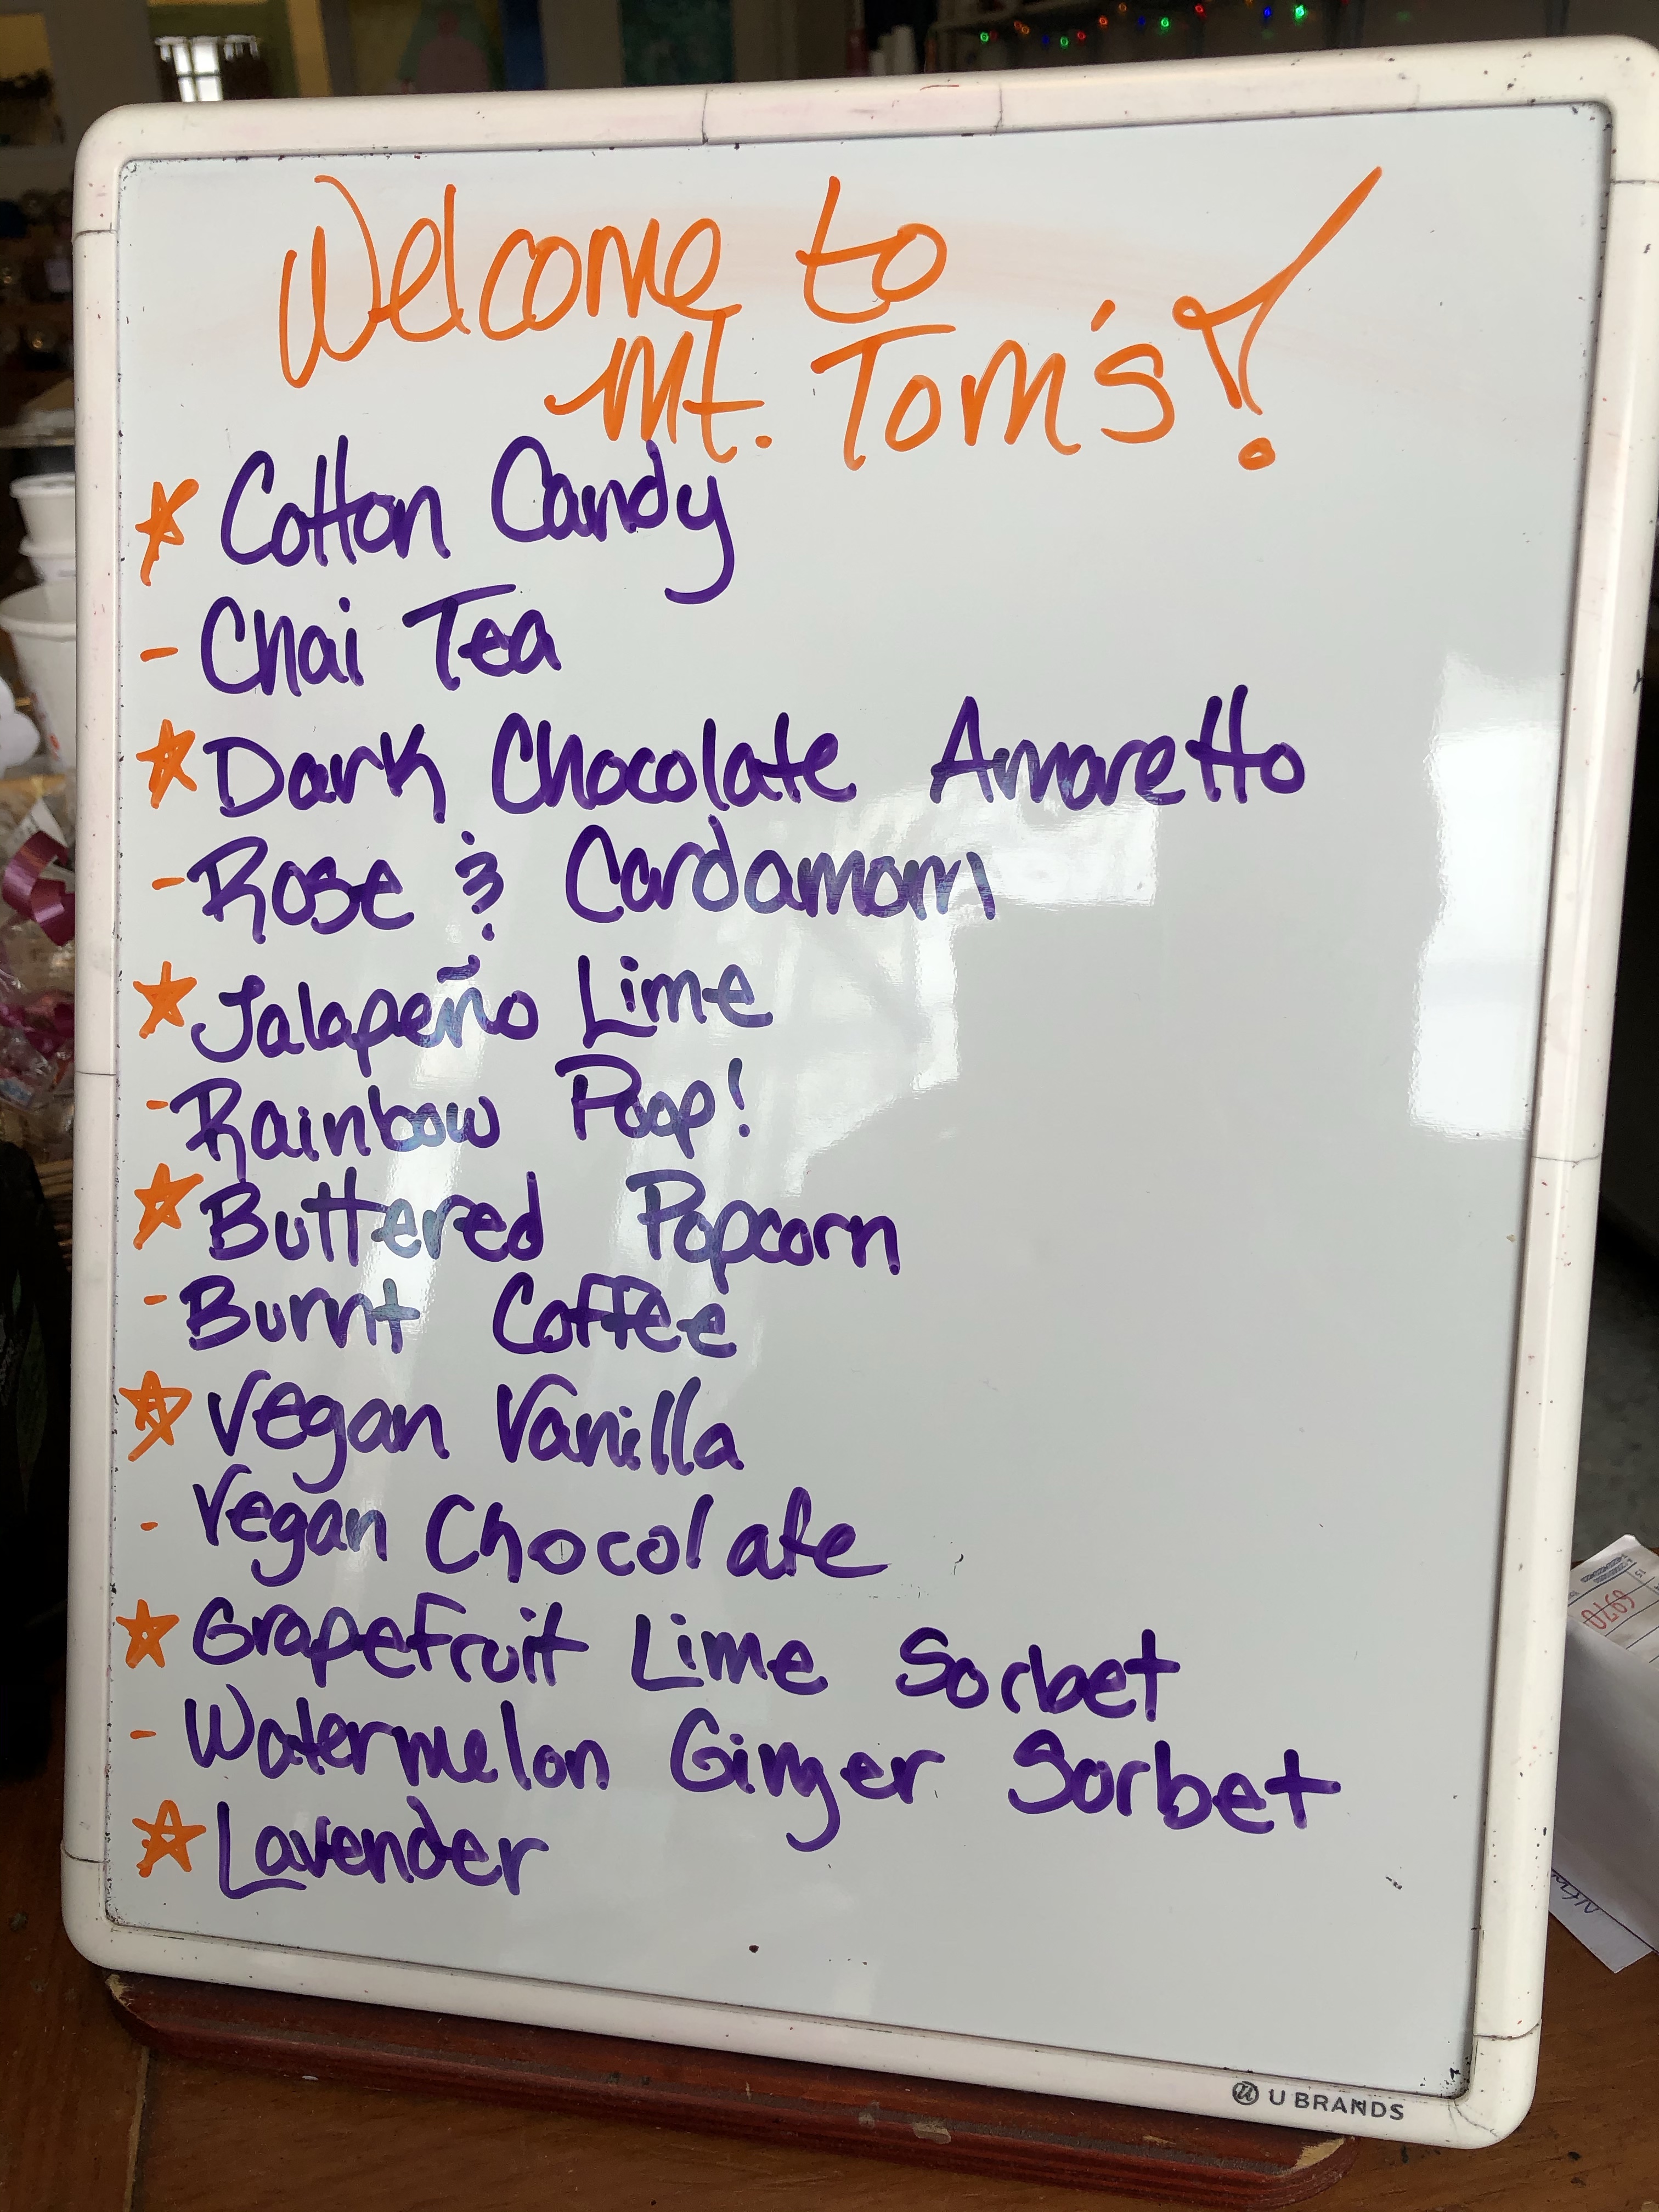 Welcome to
Mt. Tom's!
Cotton Candy
- Chai Tea
Dark Chocolate Amaretto
- Rose & Cardamom
Jalapeño Lime
- Rainbow Poop!
Buttered Popcorn
- Burnt Coffee
Vegan Vanilla
- Vegan Chocolate
Grapefruit Lime Sorbet
- Watermelon Ginger Sorbet
Lavender
U BRANDS